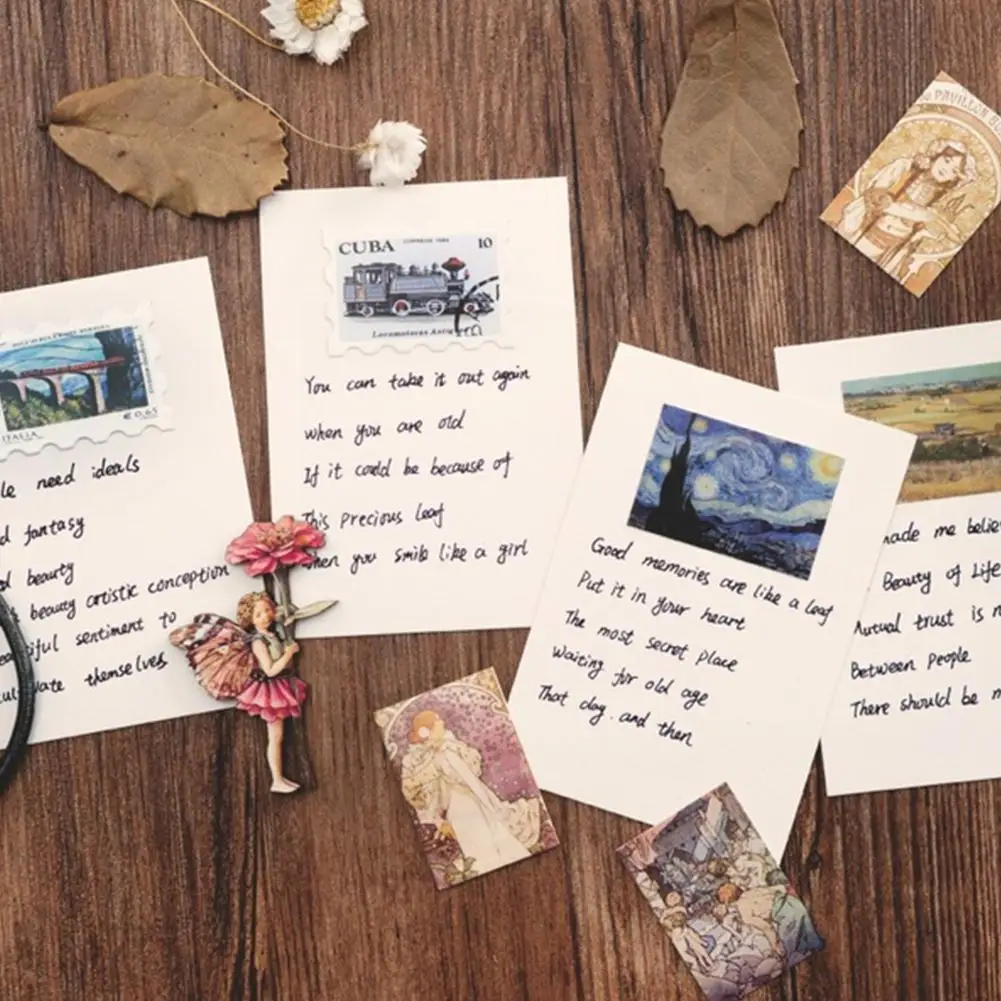 €0,65
ITALIA
need ideals
fantasy
beauty
beauty artistic conception
sentiment to
themselves
CUBA CORREOS 10
Locomotoras
You can take it out again
when you are old
If it could be because of
This Precious leaf
When you smile like a girl
Good memories are like a leaf
Put it in your heart
The most secret place
Waiting for old age
That day. and then
PAVILLON
made me
Beauty of Life
Mutual trust is
Between People
There should be